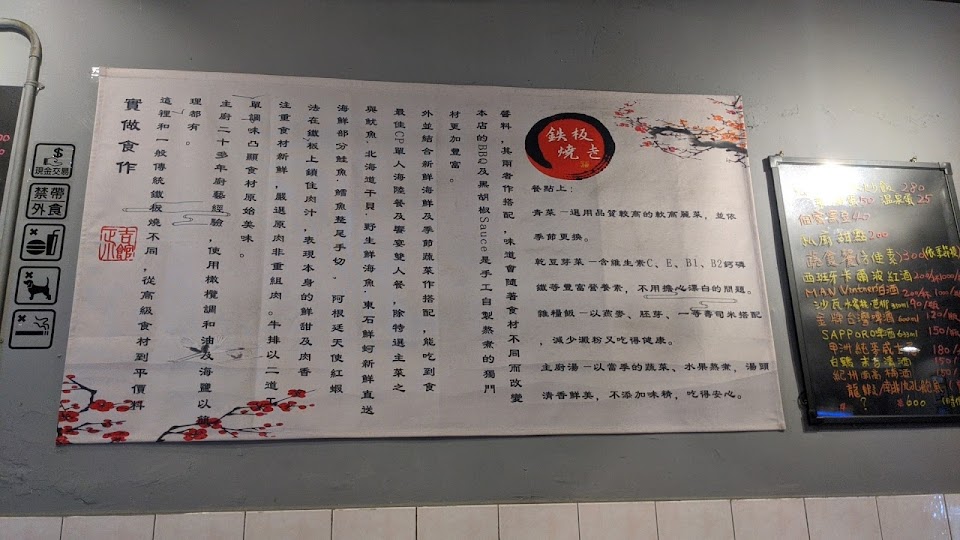 實做食作
這裡和一般傳統鐵板燒不同,從高級食材到平價料
理都有。
主廚二十多年廚藝經驗,使用橄欖調和油及海鹽以簡
單調味凸顯食材原始美味。
注重食材新鮮,嚴選原肉非重組肉。牛排以二道工
法在鐵板上鎖住肉汁,表現本身的鮮甜及肉香
海鮮部分鮭魚、鱈魚整尾手切.阿根廷天使紅蝦
與魷魚.北海道干貝.野生鮮海魚.東石鮮蚵新鮮直送
最佳CP單人海陸餐及饗宴雙人餐,除特選主菜之
外並結合新鮮海鮮及季節蔬菜作搭配,能吃到食
材更加豐富。
本店的BBQ及黑胡椒Sauce是手工自製熬煮的獨門
醬料,其兩者作搭配,味道會隨著食材不同而改變
鉄板
燒き
餐點上:
青菜-選用品質較高的軟高麗菜,並依
季節更換。
乾豆芽菜-含維生素C、E、B1、B2鈣磷
鐵等豐富營養素,不用擔心漂白的問題。
雜糧飯-以燕麥、胚芽、一等壽司米搭配
,減少澱粉又吃得健康。
主廚湯-以當季的蔬菜、水果熬煮,湯頭
清香鮮美,不添加味精,吃得安心。
現金交易
禁帶
外食
280
溫泉蛋 25
甜點 200
蔬食餐(佳素)300
西班牙卡爾波紅酒
MAN Vintner白酒
金牌台灣啤酒 600ml 120/瓶
SAPPORO啤酒 633ml 150/瓶
180
150
? ¥600